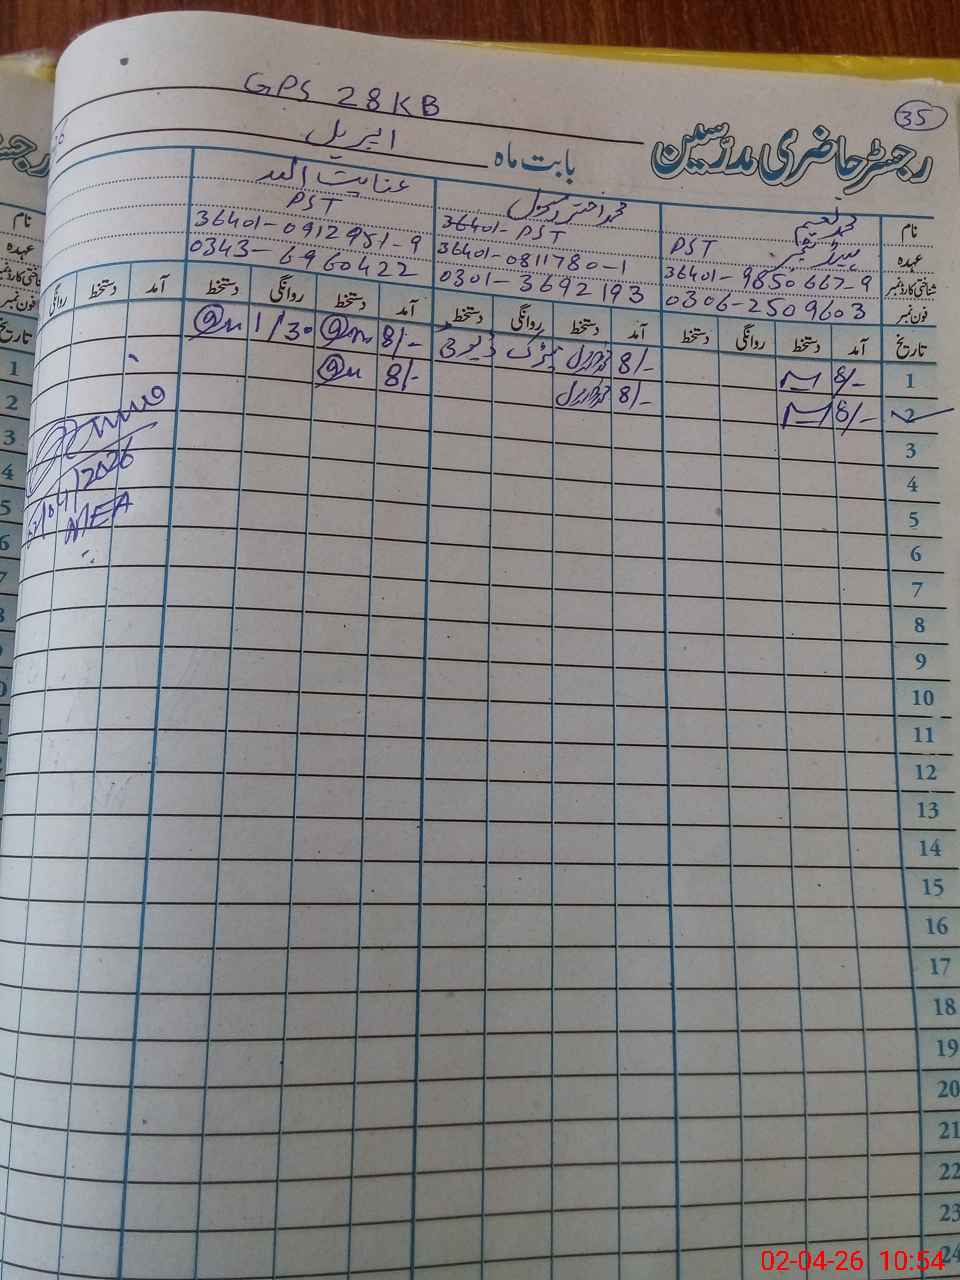 35
GPS 28KB
رجسٹر حاضری مدرسین
بابت ماہ اپریل
نام محمد نعیم محمد اختر رسول عنایت اللہ
عہدہ PST ہیڈ ٹیچر PST PST
شناختی کارڈ نمبر 36401-9850667-9 36401- 36401-0811780-1 36401-0912951-9
فون نمبر 0306-2509603 0301-3692193 0343-6960422
تاریخ آمد دستخط روانگی دستخط آمد دستخط روانگی دستخط آمد دستخط روانگی دستخط آمد دستخط روانگی
1 8/- 8/- ڈیوٹی 8/- 1/30
2 8/- 8/- 8/-
3
4
5
6
7
8
9
10
11
12
13
14
15
16
17
18
19
20
21
22
23
24
/04/2026
MEA
رجسٹر
نام
عہدہ
شناختی کارڈ نمبر
فون نمبر
تاریخ
1
2
3
4
5
6
7
02-04-26 10:54